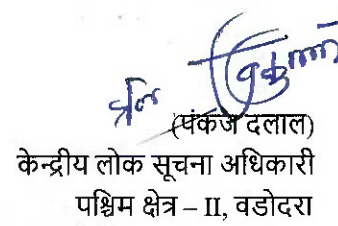 (पंकज दलाल)
केन्द्रीय लोक सूचना अधिकारी
पश्चिम क्षेत्र – II, वडोदरा